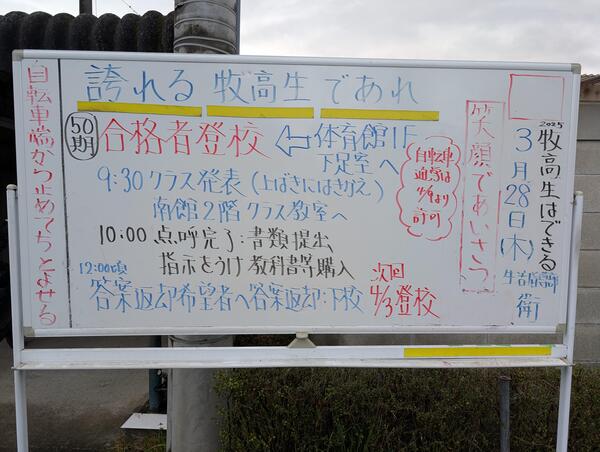 誇れる 牧高生であれ
50期
合格者登校 ⇦ 体育館1F
下足室へ
9:30 クラス発表(上ばきにはきかえ)
南館2階クラス教室へ
10:00 点呼完了:書類提出
指示をうけ教科書等購入
12:00頃
答案返却希望者へ答案返却:下校
次回
4/3登校
自転車
通学は
4/9より
許可
笑顔であいさつ
2025
牧高生はできる
3月28日(木)
衛
自転車端から止めてちとよせる